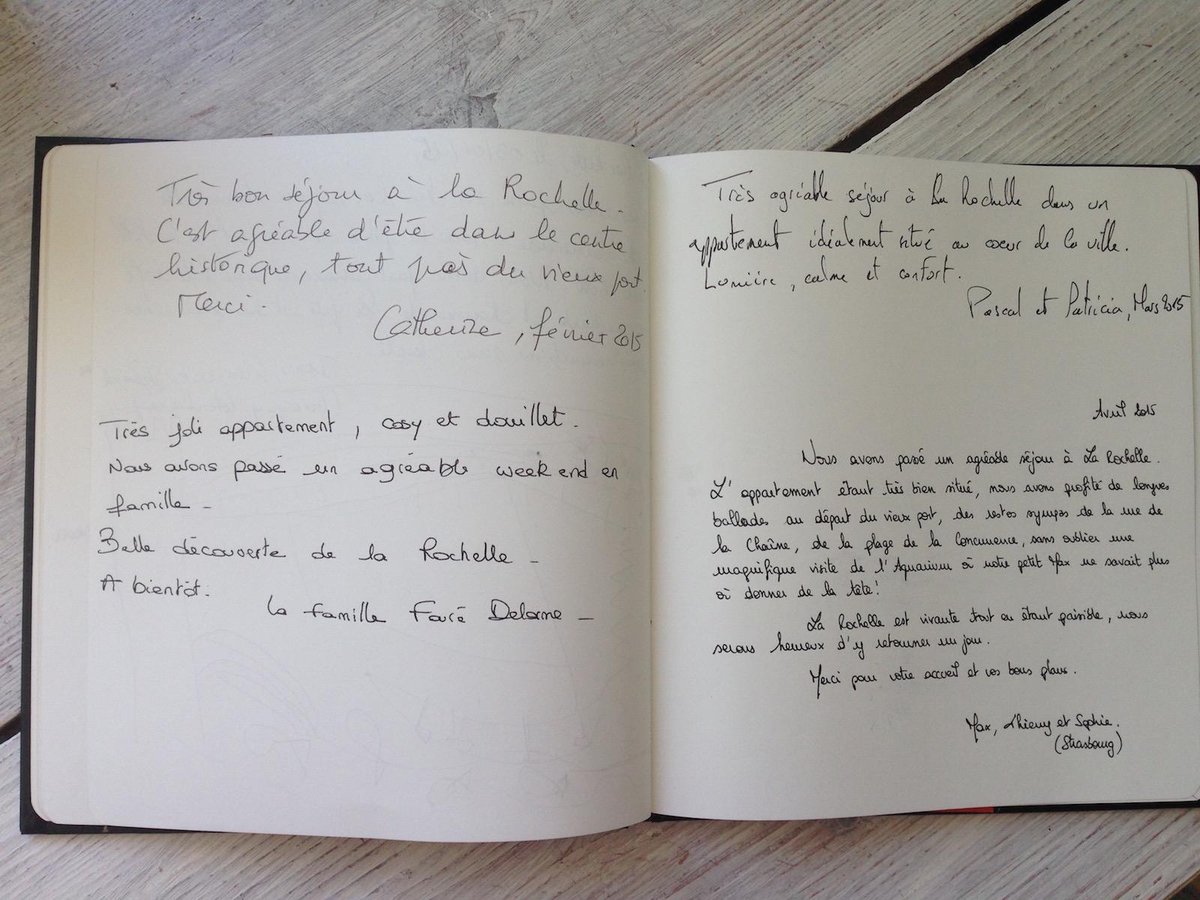 Très bon séjour à la Rochelle.
C'est agréable d'être dans le centre
historique, tout près du vieux port.
Merci.
Catherine, février 2015
Très joli appartement, cosy et douillet.
Nous avons passé un agréable week end en
famille.
Belle découverte de la Rochelle.
A bientôt.
la famille Fauré Delorme
Très agréable séjour à La Rochelle dans un
appartement idéalement situé au coeur de la ville.
Lumière, calme et confort.
Pascal et Patricia, Mars 2015
Avril 2015
Nous avons passé un agréable séjour à La Rochelle.
L'appartement étant très bien situé, nous avons profité de longues
ballades au départ du vieux port, des restos sympas de la rue de
la Chaîne, de la plage de la Concurrence, sans oublier une
magnifique visite de l'Aquarium où notre petit Max ne savait plus
où donner de la tête!
La Rochelle est vivante tout en étant paisible, nous
serons heureux d'y retourner un jour.
Merci pour votre accueil et vos bons plans.
Max, Thierry et Sophie.
(Strasbourg)